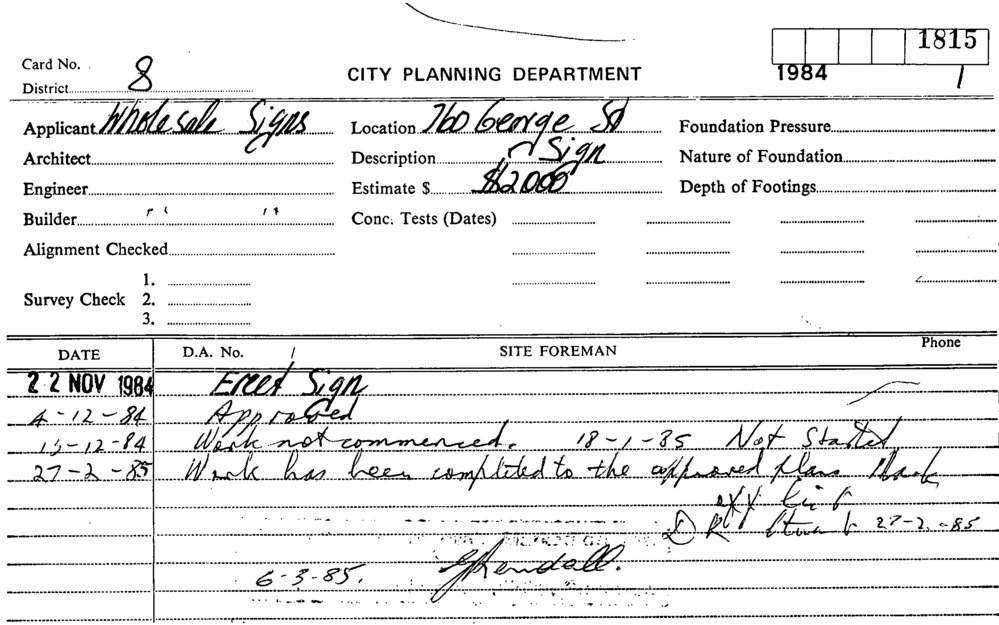 1815
Card No.
1984 1
CITY PLANNING DEPARTMENT
District 8
Applicant Wholesale Signs Location 760 George St Foundation Pressure
Architect Description Sign Nature of Foundation
Engineer Estimate $ $2000 Depth of Footings
Builder " " Conc. Tests (Dates)
Alignment Checked
1.
Survey Check 2.
3.
DATE D.A. No. SITE FOREMAN Phone
22 NOV 1984 Erect Sign
4-12-84 Approved
13-12-84 Work not commenced. 18-1-85 Not Started
27-2-85 Work has been completed to the approved plans
27-2-85
6-3-85. GKendall.